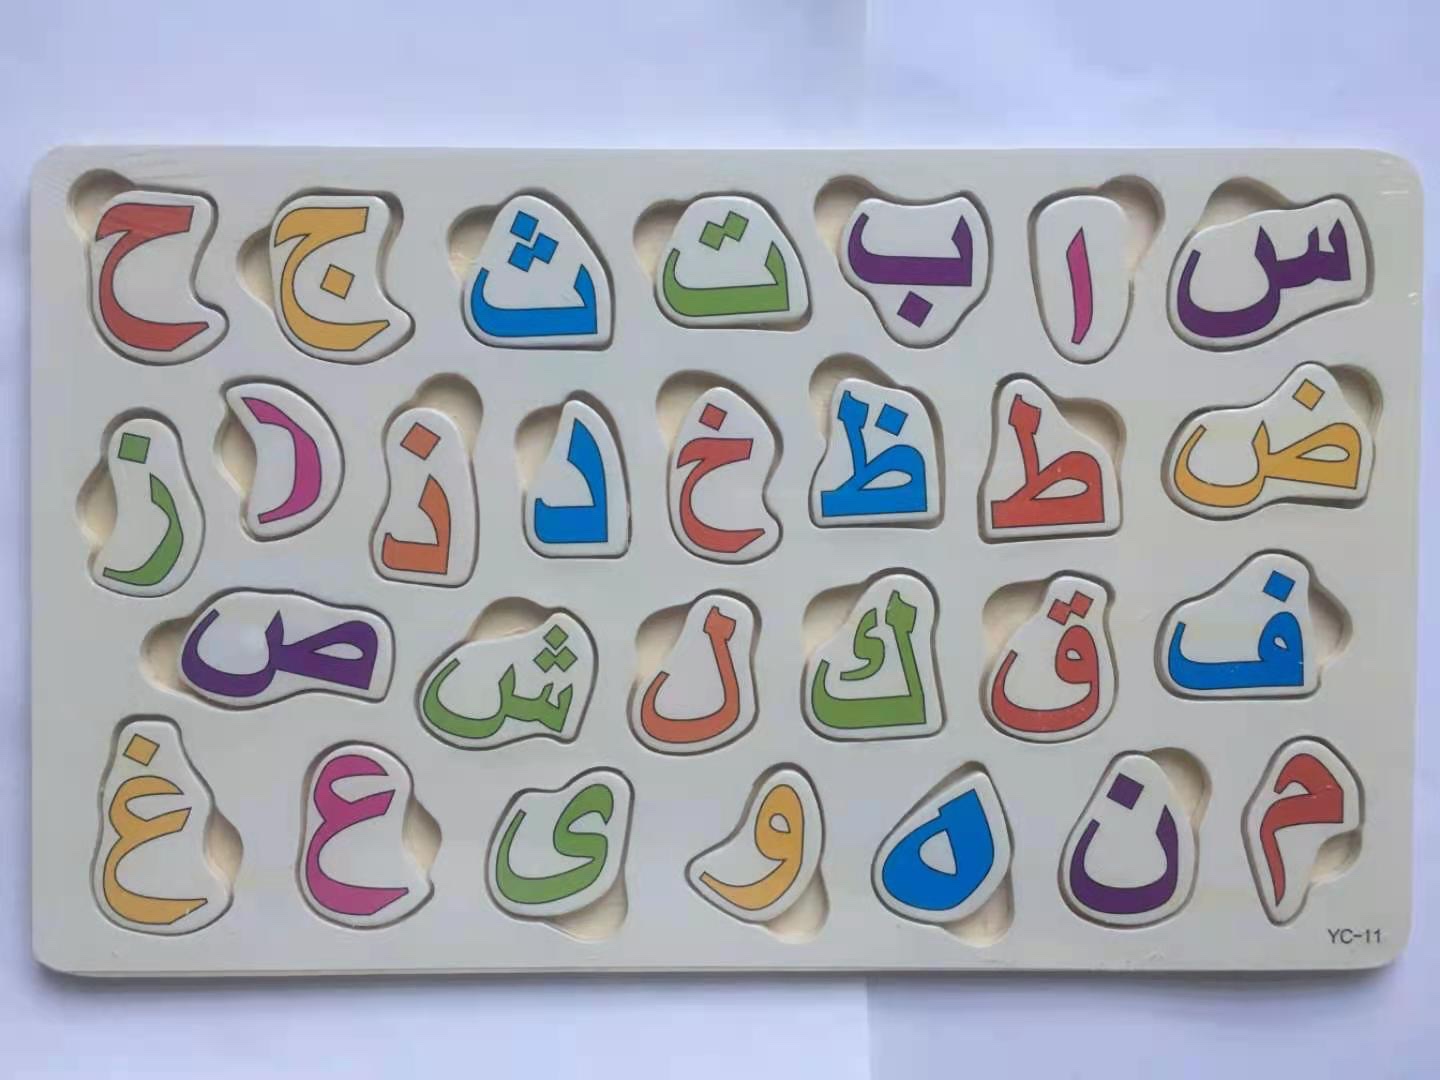 س ا ب ت ث ج ح
ض ط ظ خ د ذ ر ز
ف ق ك ل ش ص
م ن ه و ى ع غ
YC-11